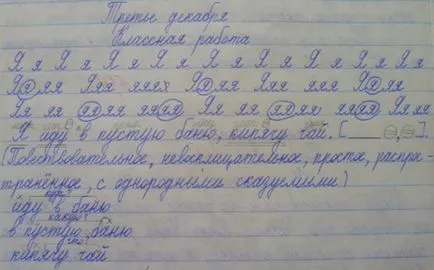 Третье декабря
Классная работа
Я я Я я Я я Я я Я я Я я Я я Я я
Я я яя Яяя яяях Яяяя Яяя яяя Яяяя
Яя яя яяяя яяяя Яя яя яяяя яяяя Яяяя
Я иду в пустую баню, кипячу чай. [ , .]
(Повествовательное, невосклицательное, простое, распро-
транённое, с однородными сказуемыми)
куда?
иду в баню
какую?
в пустую баню
что?
кипячу чай